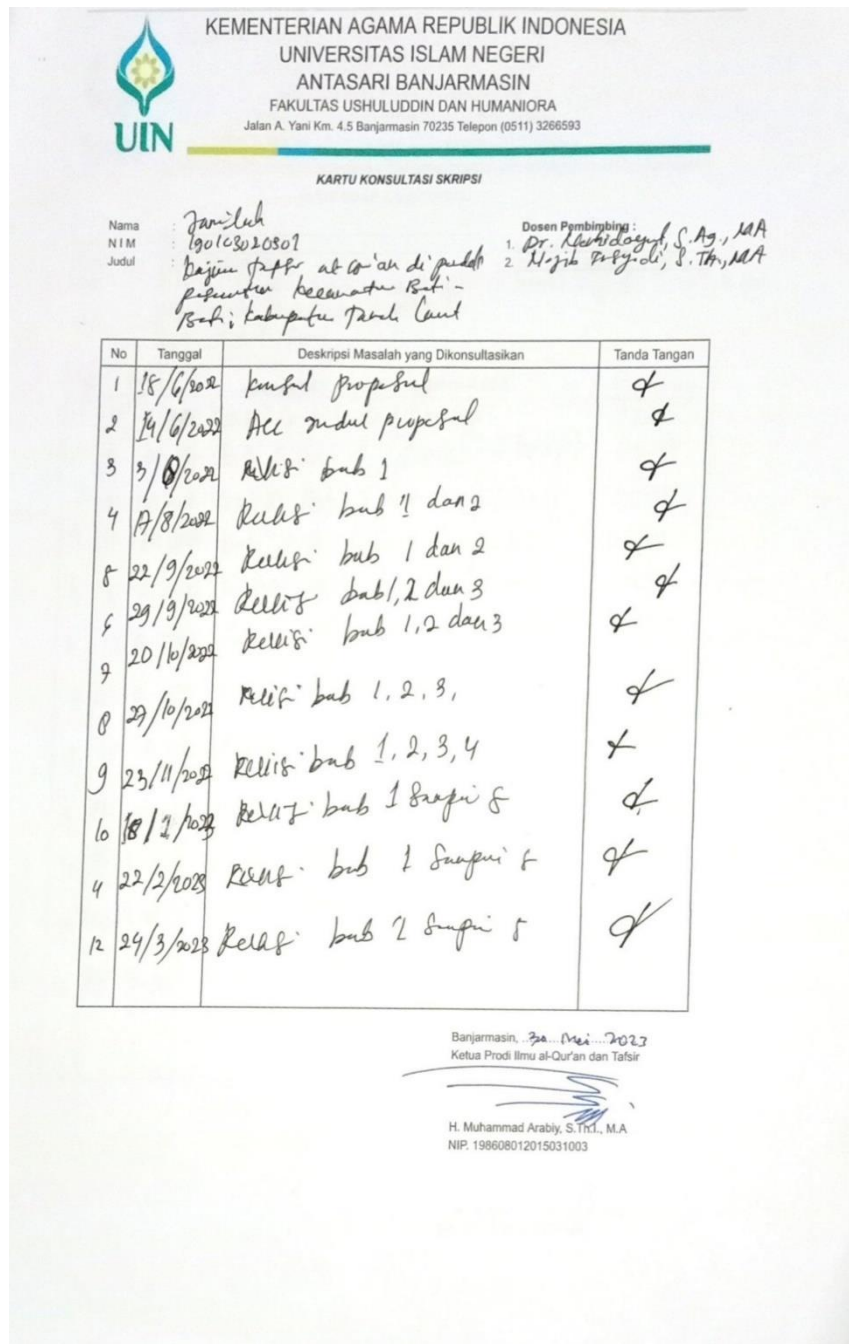 KEMENTERIAN AGAMA REPUBLIK INDONESIA
UNIVERSITAS ISLAM NEGERI
ANTASARI BANJARMASIN
FAKULTAS USHULUDDIN DAN HUMANIORA
Jalan A. Yani Km. 4.5 Banjarmasin 70235 Telepon (0511) 3266593
UIN
KARTU KONSULTASI SKRIPSI
Nama : Jamilah
NIM : 190103020302
Judul : Kajian tafsir al-qur'an di pondok
pesantren kecamatan Bati-
Bati, kabupaten Tanah Laut
Dosen Pembimbing :
1. Dr. S.Ag., MA
2. S.Th., MA
No Tanggal Deskripsi Masalah yang Dikonsultasikan Tanda Tangan
1 /6/2022 konsul proposal
2 14/6/2022 Acc judul proposal
3 3/8/2022 Revisi bab 1
4 /8/2022 Revisi bab 1 dan 2
5 22/9/2022 Revisi bab 1 dan 2
6 29/9/2022 Revisi bab 1, 2 dan 3
7 20/10/2022 Revisi bab 1, 2 dan 3
8 27/10/2022 Revisi bab 1, 2, 3,
9 23/11/2022 Revisi bab 1, 2, 3, 4
10 18/1/2023 Revisi bab 1 Sampai 5
11 22/2/2023 Revisi bab 1 Sampai 5
12 24/3/2023 Revisi bab 1 Sampai 5
Banjarmasin, 30 Mei 2023
Ketua Prodi Ilmu al-Qur'an dan Tafsir
H. Muhammad Arabiy, S.Th.I., M.A
NIP. 198608012015031003